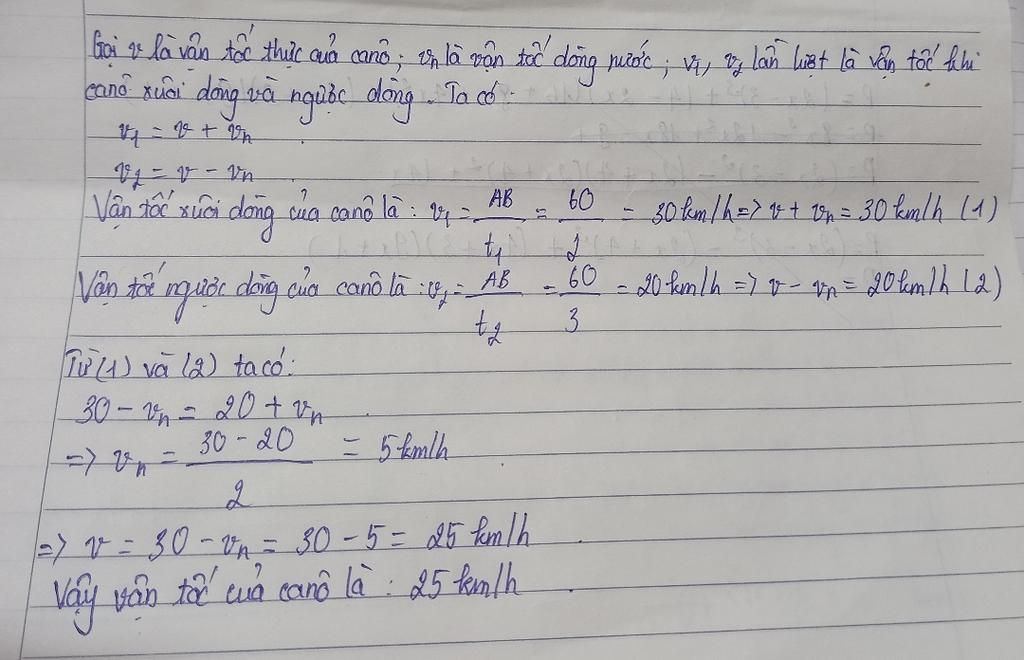 Gọi v là vận tốc thực của canô; vn là vận tốc dòng nước; v1, v2 lần lượt là vận tốc khi
canô xuôi dòng và ngược dòng. Ta có:
v1 = v + vn
v2 = v - vn
Vận tốc xuôi dòng của canô là: v1 = AB/t1 = 60/2 = 30km/h => v + vn = 30km/h (1)
Vận tốc ngược dòng của canô là: v2 = AB/t2 = 60/3 = 20km/h => v - vn = 20km/h (2)
Từ (1) và (2) ta có:
30 - vn = 20 + vn
=> vn = (30 - 20)/2 = 5km/h
=> v = 30 - vn = 30 - 5 = 25 km/h
Vậy vận tốc của canô là: 25 km/h